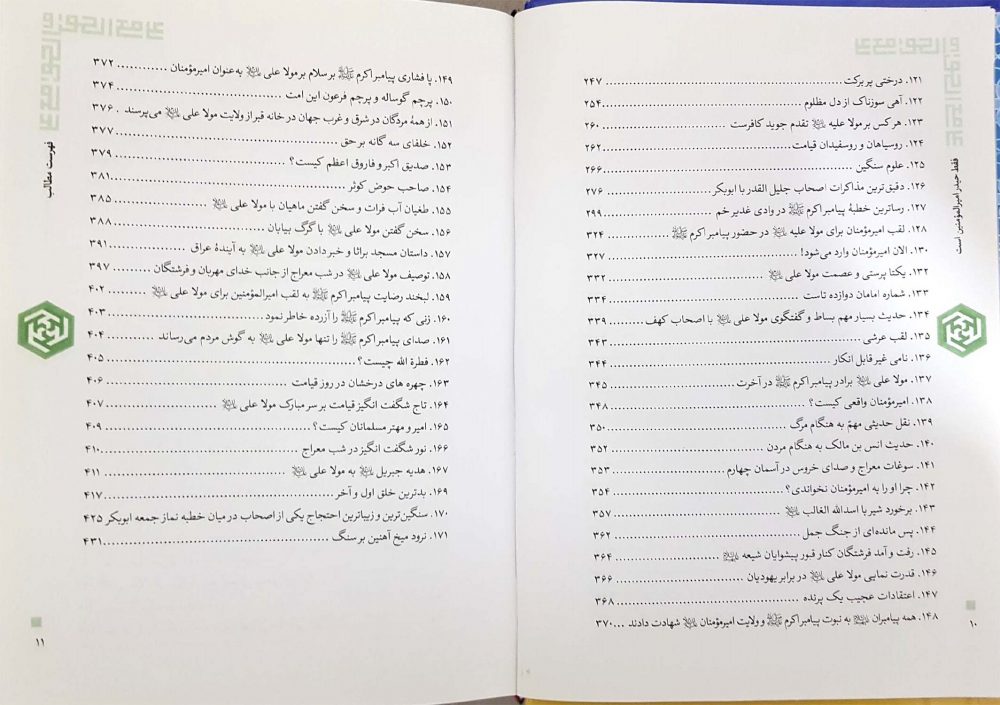 فقط حیدر امیرالمؤمنین است
۱۲۱. درختی پر برکت ........ ۲۴۷
۱۲۲. آهی سوزناک از دل مظلوم ........ ۲۵۴
۱۲۳. هر کس بر مولا علیه ﷺ تقدم جوید کافرست ........ ۲۶۰
۱۲۴. روسیاهان و روسفیدان قیامت ........ ۲۶۲
۱۲۵. علوم سنگین ........ ۲۶۶
۱۲۶. دقیق‌ترین مذاکرات اصحاب جلیل القدر با ابوبکر ........ ۲۷۶
۱۲۷. رساترین خطبۀ پیامبر اکرم ﷺ در وادی غدیر خم ........ ۲۹۹
۱۲۸. لقب امیرمؤمنان برای مولا علیه در حضور پیامبر اکرم ﷺ ........ ۳۲۴
۱۳۰. الان امیرمؤمنان وارد می‌شود! ........ ۳۲۷
۱۳۲. یکتا پرستی و عصمت مولا علی ........ ۳۳۲
۱۳۳. شماره امامان دوازده تاست ........ ۳۳۴
۱۳۴. حدیث بسیار مهم بساط و گفتگوی مولا علی با اصحاب کهف ........ ۳۳۹
۱۳۵. لقب عرشی ........ ۳۴۳
۱۳۶. نامی غیر قابل انکار ........ ۳۴۴
۱۳۷. مولا علی برادر پیامبر اکرم ﷺ در آخرت ........ ۳۴۵
۱۳۸. امیرمؤمنان واقعی کیست؟ ........ ۳۴۸
۱۳۹. نقل حدیثی مهمّ به هنگام مرگ ........ ۳۵۰
۱۴۰. حدیث انس بن مالک به هنگام مردن ........ ۳۵۲
۱۴۱. سوغات معراج و صدای خروس در آسمان چهارم ........ ۳۵۳
۱۴۲. چرا او را به امیرمؤمنان نخواندی؟ ........ ۳۵۴
۱۴۳. برخورد شیر با اسدالله الغالب ........ ۳۵۷
۱۴۴. پس مانده‌ای از جنگ جمل ........ ۳۶۲
۱۴۵. رفت و آمد فرشتگان کنار قبور پیشوایان شیعه ........ ۳۶۴
۱۴۶. قدرت نمایی مولا علی در برابر یهودیان ........ ۳۶۶
۱۴۷. اعتقادات عجیب یک پرنده ........ ۳۶۸
۱۴۸. همه پیامبران به نبوت پیامبر اکرم ﷺ و ولایت امیرمؤمنان شهادت دادند ... ۳۷۰
۱۰
فهرست مطالب
۱۴۹. پا فشاری پیامبر اکرم ﷺ بر سلام بر مولا علی به عنوان امیرمؤمنان ........ ۳۷۲
۱۵۰. پرچم گوساله و پرچم فرعون این امت ........ ۳۷۴
۱۵۱. از همۀ مردگان در شرق و غرب جهان در خانه قبر از ولایت مولا علی می‌پرسند . ۳۷۶
۱۵۲. خلفای سه گانه بر حق ........ ۳۷۷
۱۵۳. صدیق اکبر و فاروق اعظم کیست؟ ........ ۳۷۹
۱۵۴. صاحب حوض کوثر ........ ۳۸۱
۱۵۵. طغیان آب فرات و سخن گفتن ماهیان با مولا علی ........ ۳۸۵
۱۵۶. سخن گفتن مولا علی با گرگ بیابان ........ ۳۸۸
۱۵۷. داستان مسجد براثا و خبر دادن مولا علی به آیندۀ عراق ........ ۳۹۱
۱۵۸. توصیف مولا علی در شب معراج از جانب خدای مهربان و فرشتگان ........ ۳۹۷
۱۵۹. لبخند رضایت پیامبر اکرم ﷺ به لقب امیرالمؤمنین برای مولا علی ........ ۴۰۲
۱۶۰. زنی که پیامبر اکرم ﷺ را آزرده خاطر نمود ........ ۴۰۳
۱۶۱. صدای پیامبر اکرم ﷺ را تنها مولا علی به گوش مردم می‌رساند ........ ۴۰۴
۱۶۲. فطرة الله چیست؟ ........ ۴۰۵
۱۶۳. چهره های درخشان در روز قیامت ........ ۴۰۶
۱۶۴. تاج شگفت انگیز قیامت بر سر مبارک مولا علی ........ ۴۰۷
۱۶۵. امیر و مهتر مسلمانان کیست؟ ........ ۴۰۹
۱۶۶. نور شگفت انگیز در شب معراج ........ ۴۱۰
۱۶۷. هدیه جبریل به مولا علی ........ ۴۱۱
۱۶۹. بدترین خلق اول و آخر ........ ۴۱۷
۱۷۰. سنگین‌ترین و زیباترین احتجاج یکی از اصحاب در میان خطبه نماز جمعه ابوبکر ۴۲۵
۱۷۱. نرود میخ آهنین بر سنگ ........ ۴۳۱
۱۱